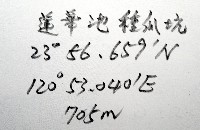 蓮華池 種瓜坑
23° 56.659'N
120° 53.040'E
705m